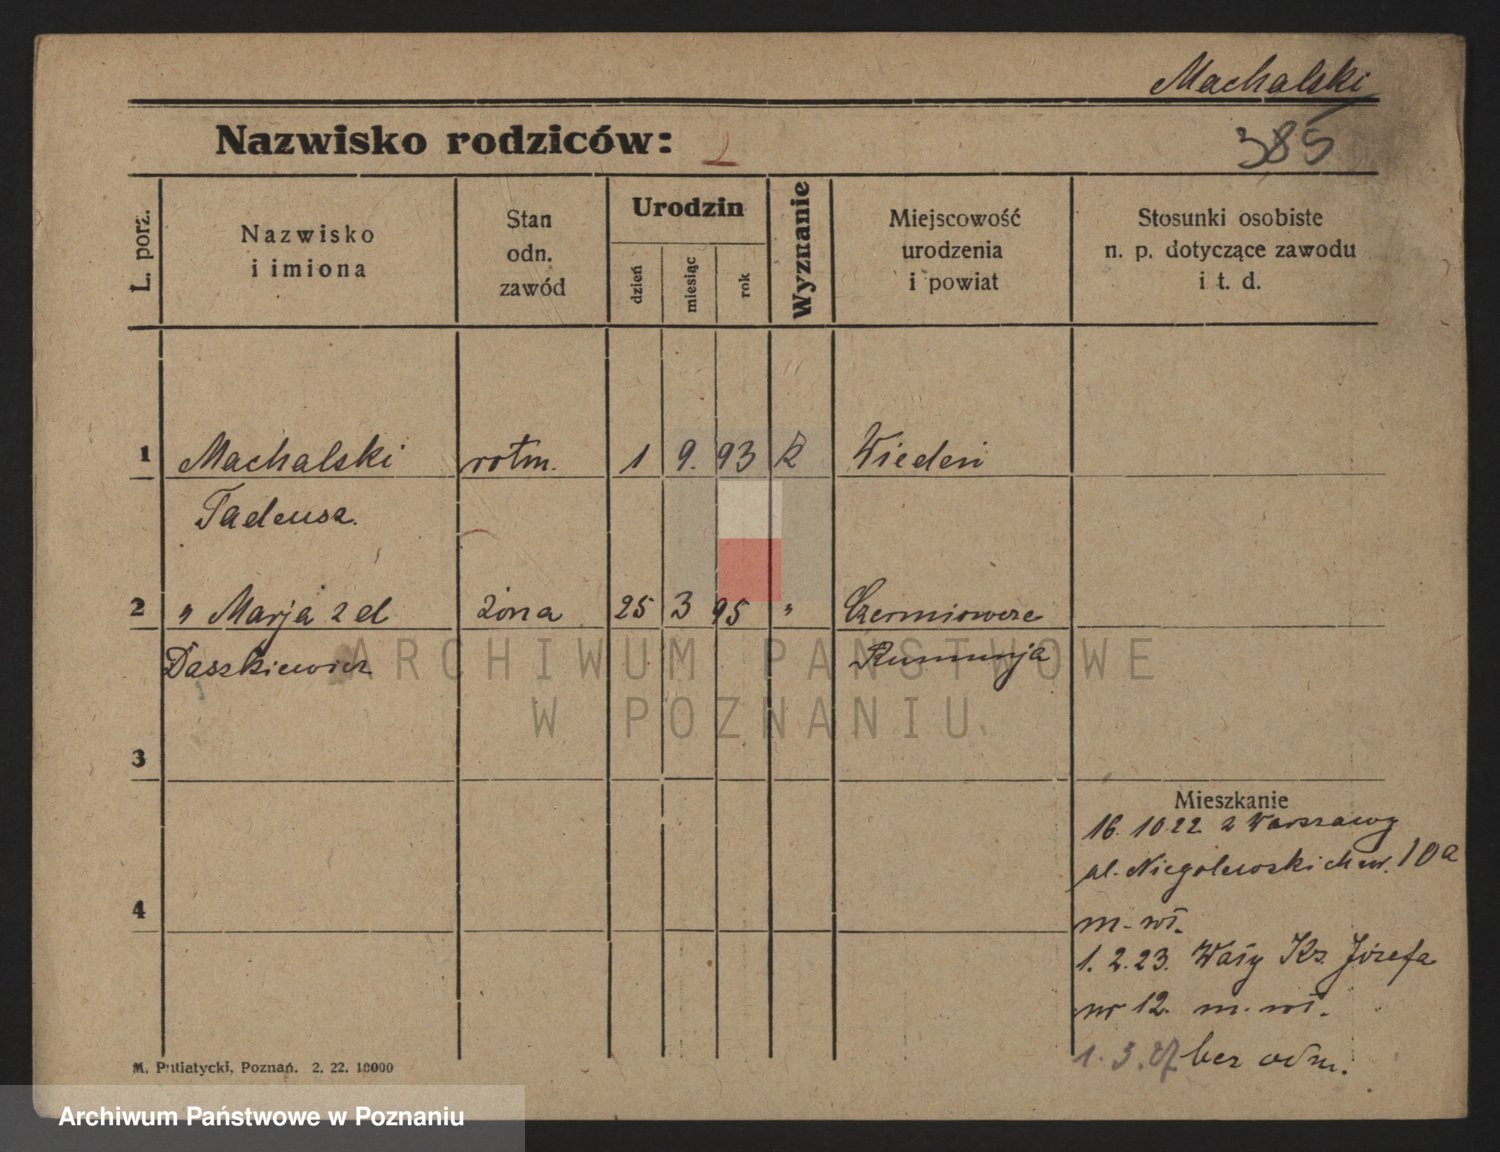 Machalski
Nazwisko rodziców:
385
L. porz.
Nazwisko
i imiona
Stan
odn.
zawód
Urodzin
dzień
miesiąc
rok
Wyznanie
Miejscowość
urodzenia
i powiat
Stosunki osobiste
n. p. dotyczące zawodu
i t. d.
1 Machalski rotm. 1 9. 93 k Wiedeń
Tadeusz.
2 " Marja z d żona 25 3 95 " Czerniowce
Daszkiewicz Rumunja
3
Mieszkanie
16. 10 22. z Warszawy
ul. Niegolewskich nr. 10a
4
m. wł.
1. 2. 23. Wały Ks. Józefa
nr 12. m. wł.
1. 3. 27 bez odm.
M. Putiatycki, Poznań. 2. 22. 10000
ARCHIWUM PAŃSTWOWE
W POZNANIU
Archiwum Państwowe w Poznaniu